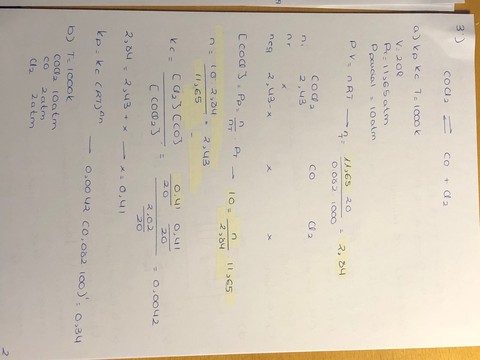 3) COCl₂ ⇌ CO + Cl₂
a) Kp Kc T=1000k
V: 20l
Pt: 11,65 atm
Pparcial = 10atm
P V = n R T → nT = 11,65 20 / 0.082 1000 = 2,84
COCl₂ CO Cl₂
ni 2,43
nr x
neq 2,43-x x x
[COCl₂] = Pp = n/nT · PT → 10 = n/2,84 11,65
n = 10 2,84 / 11,65 = 2,43
Kc = [Cl₂][CO] / [COCl₂] = 0,41/20 0,41/20 / 2,02/20 = 0,0042
2,84 = 2,43 + x → x = 0,41
Kp = Kc (RT)Δn → 0,0042 (0,082 100)¹ = 0,34
b) T=1000k
COCl₂ 10atm
CO 2atm
Cl₂ 2atm
2